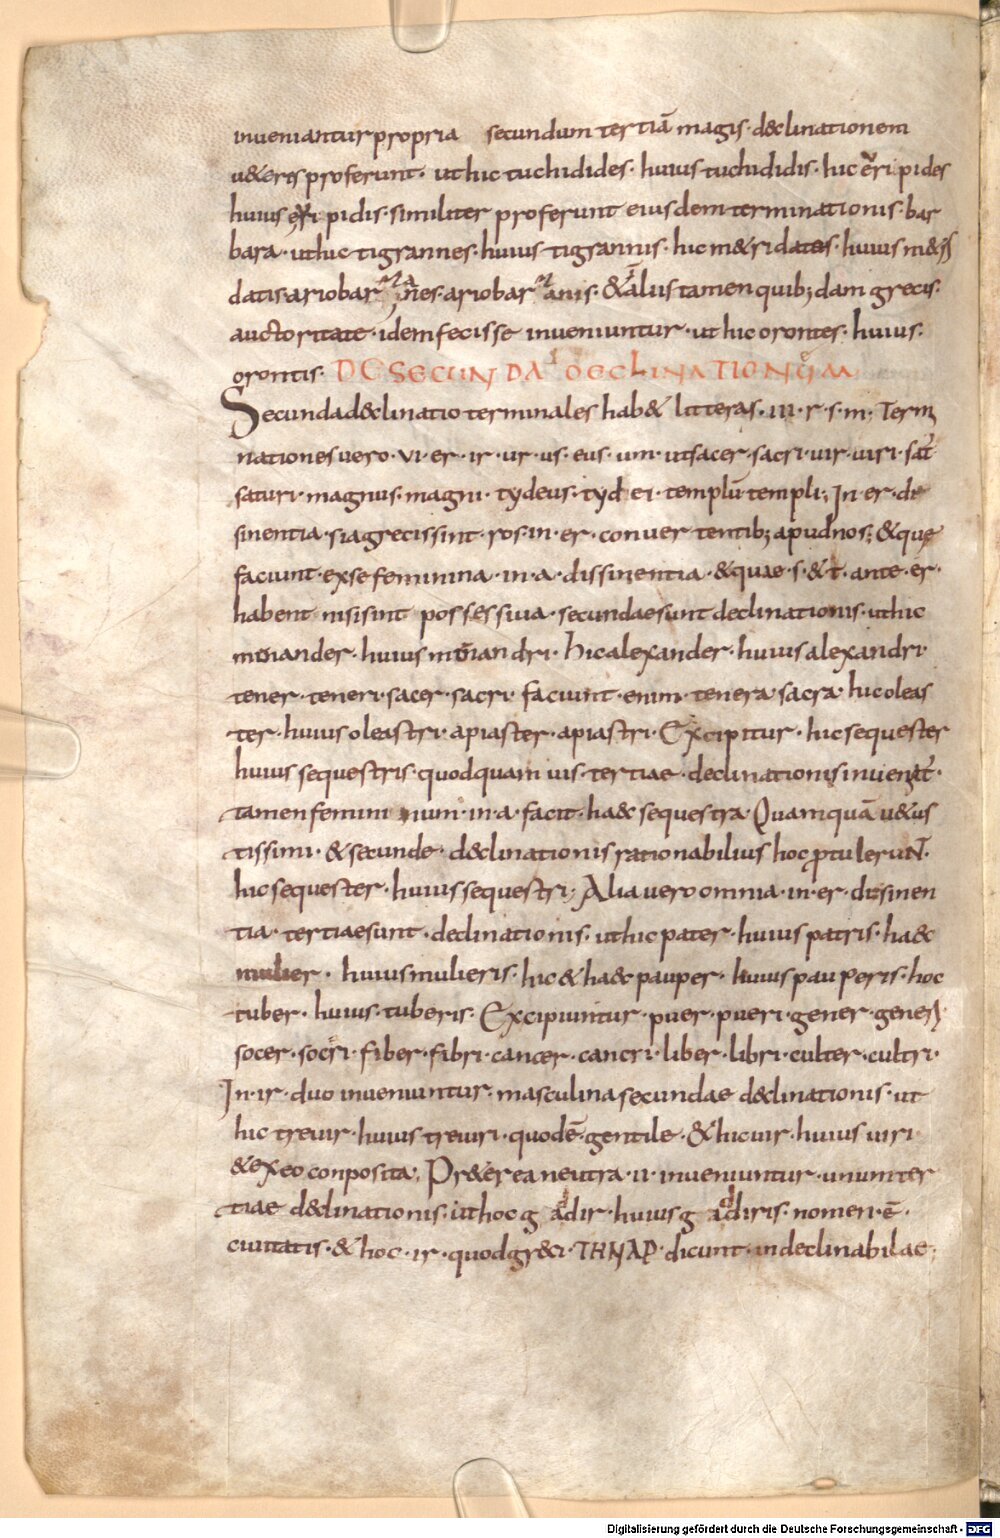 inueniantur propria secundum tertiā magis declinationem
u&eres proferunt · ut hic tuchidides · huius tuchididis · hic eripides
huius eripidis · similiter proferunt eiusdem terminationis · bar
bara · ut hic tigrannes · huius tigrannis · hic m&ridates · huius m&ri
datis · ariobarzanes · ariobarzanis · & alius tamen quib; dam grecis ·
auctoritate · idem fecisse inueniuntur · ut hic orontes · huius ·
orontis · DE SECUNDA DECLINATIONUM
Secunda declinatio terminales hab& litteras · iii · r · s · m · Termi
nationes uero · vi · er · ir · ur · us · eus · um · ut sacer · sacri · uir · uiri · sat̄
saturi · magnus · magni · tydeus · tydei · templū templi ; In · er · de
sinentia · si a grecis sint · ros · in · er · conuertentib; apud nos ; & que
faciunt · ex se feminina · in · a · dissinentia · & quae · s · & t · ante · er ·
habent nisi sint possessiua · secundae sunt declinationis · ut hic
menander · huius menandri · hic alexander · huius alexandri ·
tener · teneri · sacer · sacri · faciunt · enim · tenera · sacra · hic oleas
ter · huius oleastri · apiaster · apiastri · Excipitur · hic sequester
huius sequestris · quod quam uis · tertiae · declinationis inuenit̄ ·
tamen femininum · in · a · facit · haec sequestra · Quamquā u&us
tissimi · & secunde · declinationis rationabilius hoc ꝓtulerunt ·
hic sequester · huius sequestri ; Alia uero omnia · in · er · desinen
tia · tertiae sunt · declinationis · ut hic pater · huius patris · haec
mulier · huius mulieris · hic & haec pauper · huius pauperis · hoc
tuber · huius · tuberis · Excipiuntur · puer · pueri · gener · generi ·
socer · socri · fiber · fibri · cancer · cancri · liber · libri · culter · cultri ·
In · ir · duo inueniuntur · masculina secundae declinationis · ut
hic treuir · huius treuiri · quod ē · gentile · & hic uir · huius uiri ·
& ex eo conposita ; Pr&erea neutra · ii · inueniuntur · unum ter
tiae declinationis · ut hoc gadir · huius gadiris · nomen · ē ·
ciuitatis · & hoc · ir · quod greci · THNAP · dicunt · indeclinabilae ;
Digitalisierung gefördert durch die Deutsche Forschungsgemeinschaft - DFG